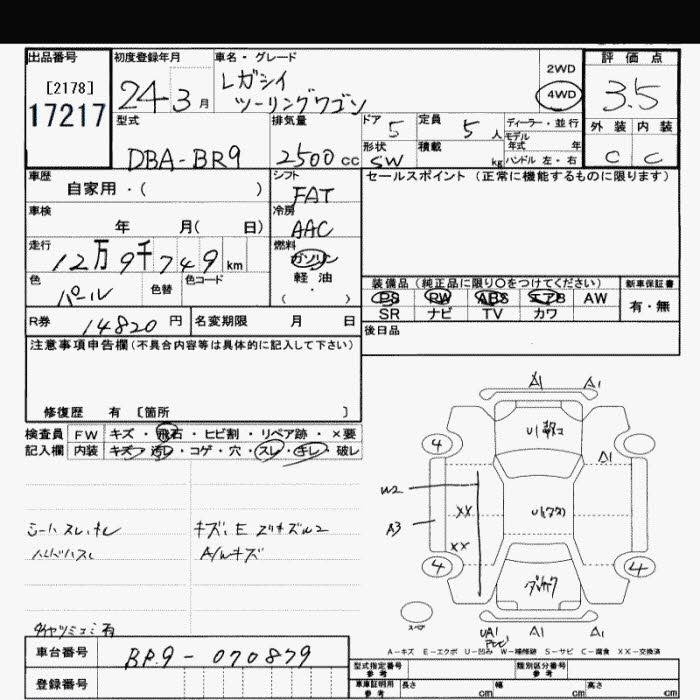 出品番号
[2178]
17217
初度登録年月
24 3月
車名・グレード
レガシイ
ツーリングワゴン
2WD
4WD
評価点
3.5
外装 内装
C C
型式
DBA-BR9
排気量
2500cc
ドア 5
定員 5人
ディーラー・並行
モデル
年式 年
形状 SW
積載 kg
ハンドル 左・右
車歴
自家用・( )
シフト
FAT
セールスポイント (正常に機能するものに限ります)
車検
年 月( 日)
冷房
AAC
走行
12万9千749km
燃料
ガソリン
軽・油
・
( )
色
パール
色替
色コード
装備品 (純正品に限り○をつけてください)
新車保証書
PS PW ABS エアB AW
SR ナビ TV カワ
有・無
R券 14820円
名変期限 月 日
後日品
注意事項申告欄 (不具合内容等は具体的に記入して下さい)
修復歴 有 [箇所 ]
検査員
記入欄
FW キズ・飛石・ヒビ割・リペア跡・×要
内装 キズ・汚レ・コゲ・穴・スレ・キレ・破レ
シートスレ、キレ
ハンドルスレ
キズ、E
A/wキズ
A1 A1
4
A1
W2
XX
XX
A3
4 4
スペア
UA1 A1 A1
A-キズ E-エクボ U-凹み W-補修跡 S-サビ C-腐食 XX-交換済
車台番号
BR9-070879
登録番号
型式指定番号
参考
類別区分番号
参考
車庫証明用
参考
長さ cm
幅 cm
高さ cm